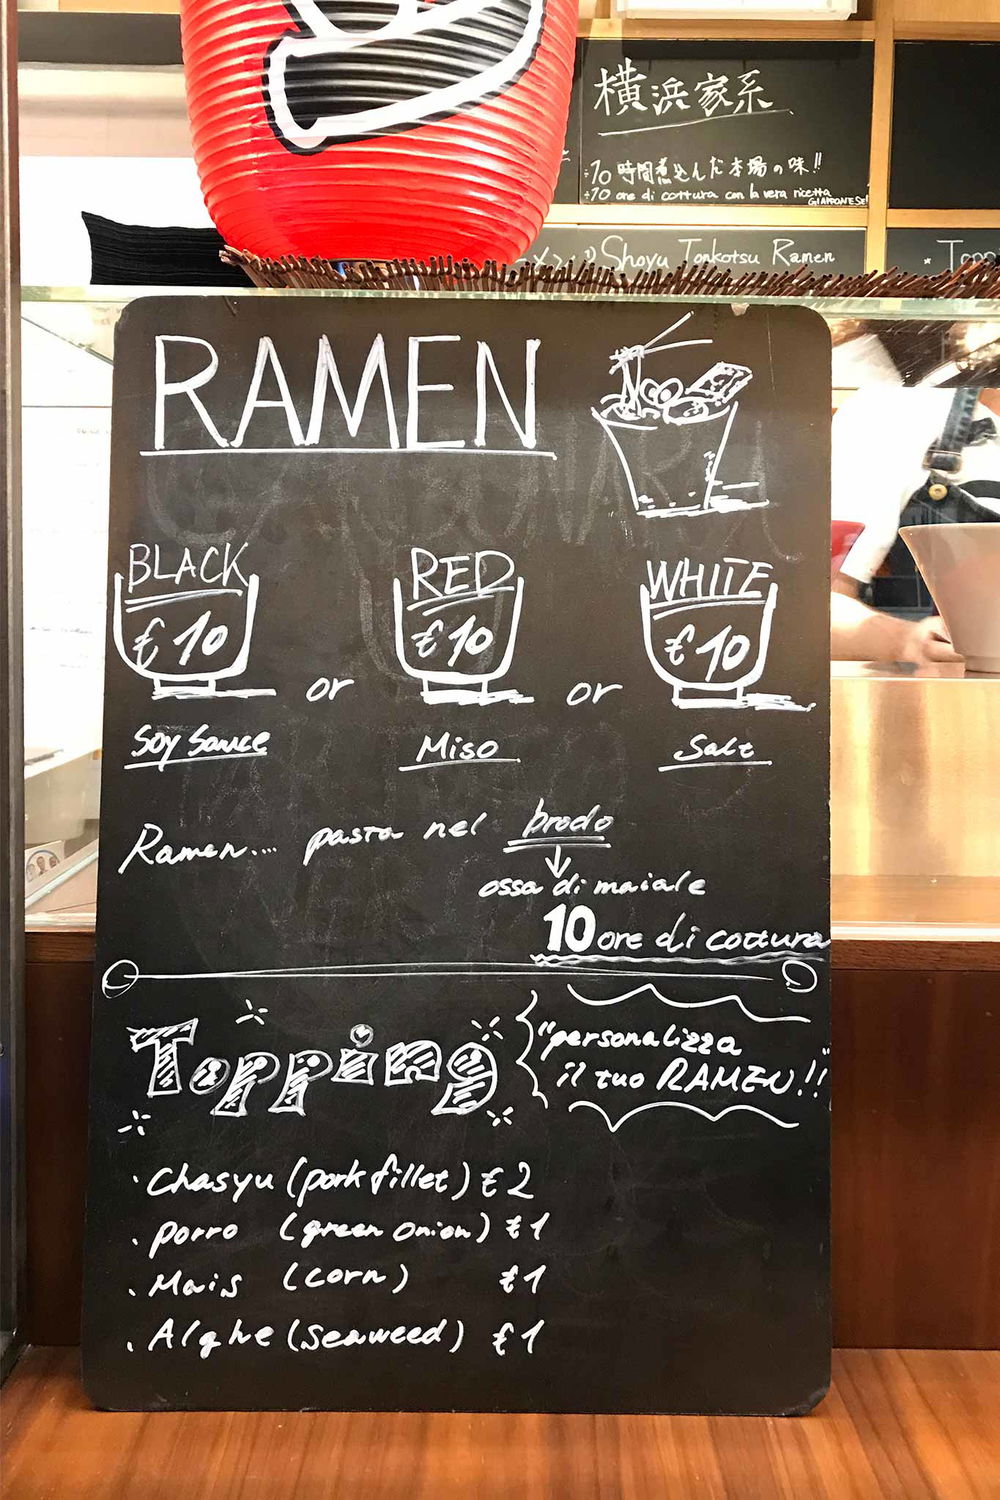 横浜家系
10時間煮込んだ本場の味!!
10 ore di cottura con la vera ricetta
GIAPPONESE!
Shoyu Tonkotsu Ramen
RAMEN
BLACK RED WHITE
€10 €10 €10
or or
Soy Sauce Miso Salt
Ramen.... pasta nel brodo
ossa di maiale
10 ore di cottura
Topping
"personalizza
il tuo RAMEN!!"
· Chasyu (pork fillet) €2
· Porro (green onion) €1
· Mais (corn) €1
· Alghe (seaweed) €1